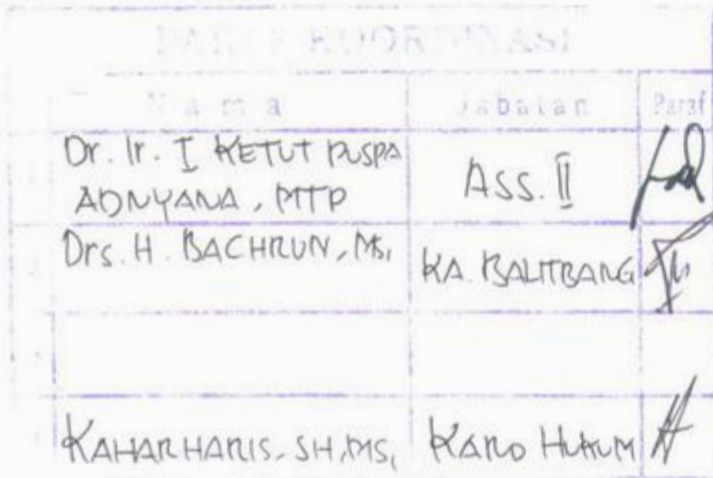 PARAF KOORDINASI
Nama Jabatan Paraf
Dr. Ir. I KETUT PUSPA
ADNYANA, MTP ASS. II
Drs. H. BACHRUN, MSi KA. BALITBANG
KAHAR HARIS, SH, MSi KARO HUKUM